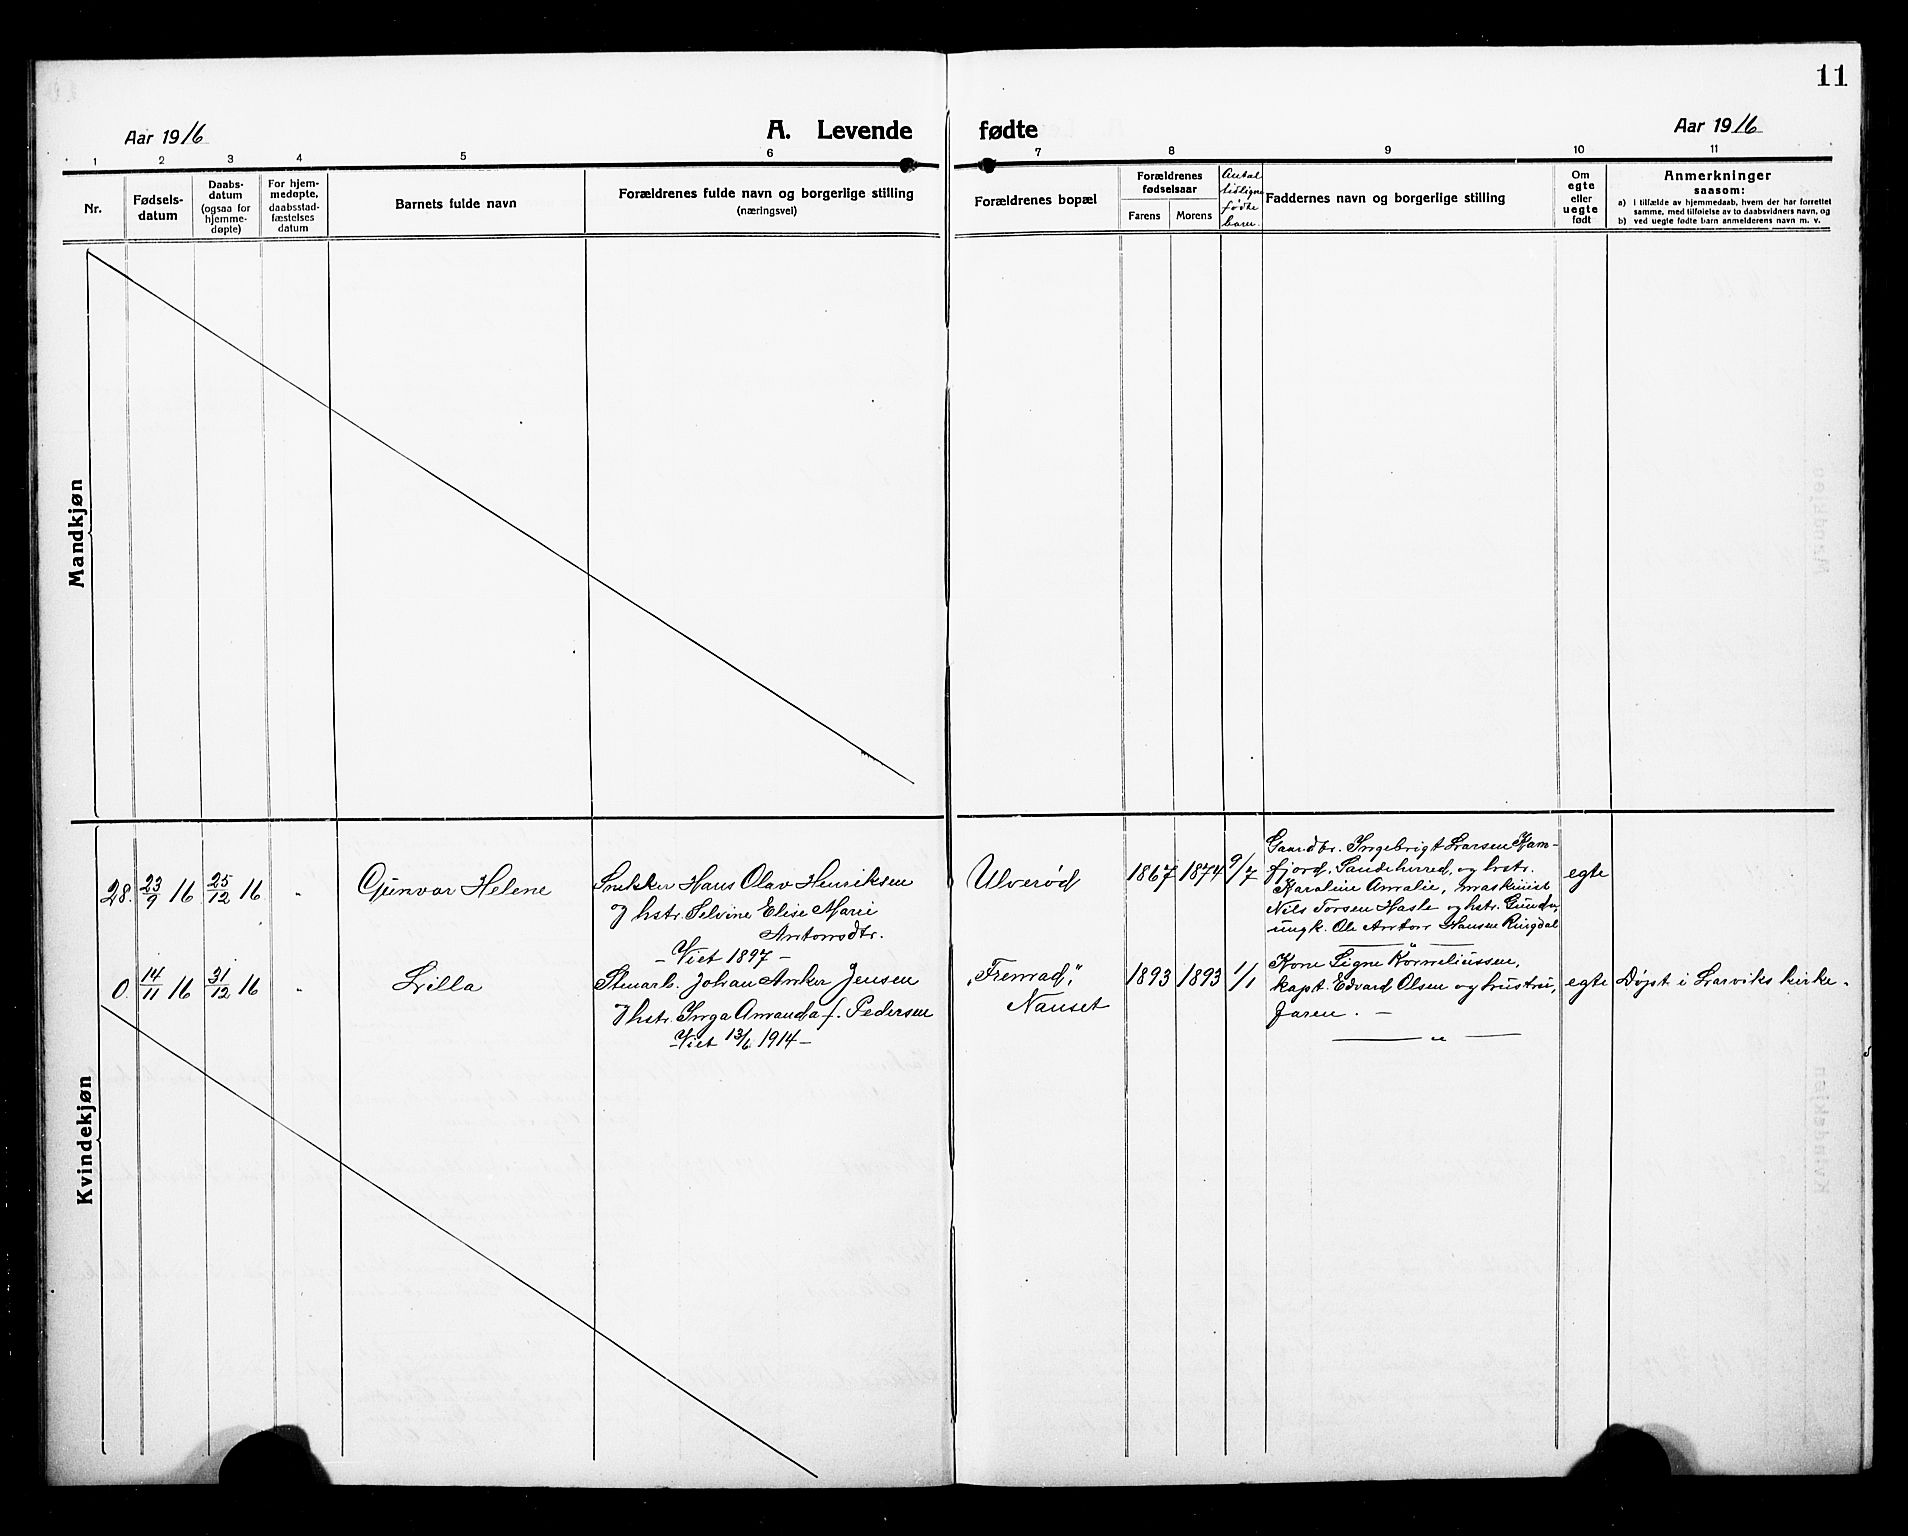 11
Aar 1916
A. Levende fødte
Aar 1916
1 2 3 4 5 6 7 8 9 10 11
Nr.
Fødsels-
datum
Daabs-
datum
(ogsaa for
hjemme-
døpte)
For hjem-
medøpte,
daabsstad-
fæstelses
datum
Barnets fulde navn
Forældrenes fulde navn og borgerlige stilling
(næringsvei)
Forældrenes bopæl
Forældrenes
fødselsaar
Farens Morens
Antal
tidligere
fødte
barn.
Faddernes navn og borgerlige stilling
Om
egte
eller
uegte
født
Anmerkninger
saasom:
a) I tilfælde av hjemmedaab, hvem der har forrettet
samme, med tilføielse av to daabsvidners navn, og
b) ved uegte fødte barn anmelderens navn m. v.
Mandkjøn
Kvindekjøn
28. 23/9 16 25/12 16 "
Gunvor Helene
Snekker Hans Olav Henriksen
og hstr. Selvine Elise Marie
Antonsdtr.
- Viet 1897 -
Ulverød
1867 1874 9/7
Gaardbr. Ingebrigt Larsen Kam-
fjord, Sandeherred, og hstr.
Karoline Amalie, maskinist
Nils Torsen Hasle og hstr. Gunda,
ungk. Ole Anton Hansen Ringdal
"
egte
0. 14/11 16 31/12 16 "
Lilla
Stenarb. Johan Anker Jensen
& hstr. Inga Amanda f. Pedersen
- Viet 13/6 1914 -
"Fremad",
Nanset
1893 1893 1/1
Kone Signe Kornelieussen,
kapt. Edvard Olsen og hustru,
Faren. -
"
egte
Døpt i Larviks kirke.